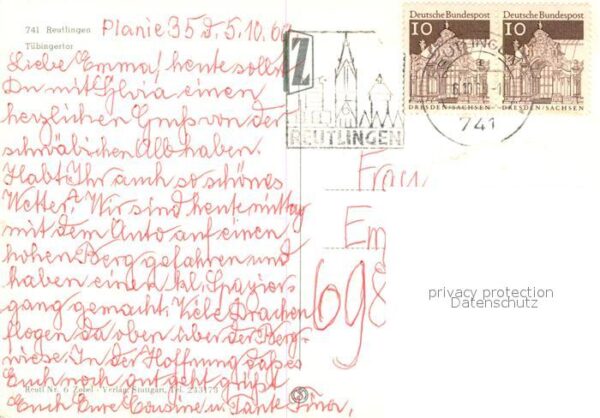 741 Reutlingen
Tübingertor
Planie 35 d. 5.10.69
Liebe Emma! heute sollst
Du mit Sylvia einen
herzlichen Gruß von der
schwäbischen Alb haben.
Habt Ihr auch so schönes
Wetter? Wir sind heute mittag
mit dem Auto auf einen
hohen Berg gefahren und
haben einen kl. Spazier=
gang gemacht. Viele Drachen
flogen da oben über der Berg-
wiese. In der Hoffnung daß es
Euch noch gut geht grüßt
Euch Eure Cousine u. Tante
Reutl Nr. 6 Zobel - Verlag Stuttgart, Tel. 233175
Z
REUTLINGEN
Deutsche Bundespost
10
DRESDEN/SACHSEN
Deutsche Bundespost
10
DRESDEN/SACHSEN
REUTLINGEN
741
Frau
Em
698
privacy protection
Datenschutz